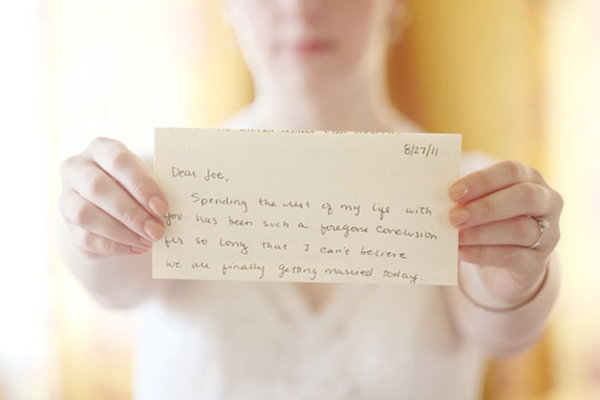 8/27/11
Dear Joe,
Spending the rest of my life with
you has been such a foregone conclusion
for so long that I can't believe
we are finally getting married today.